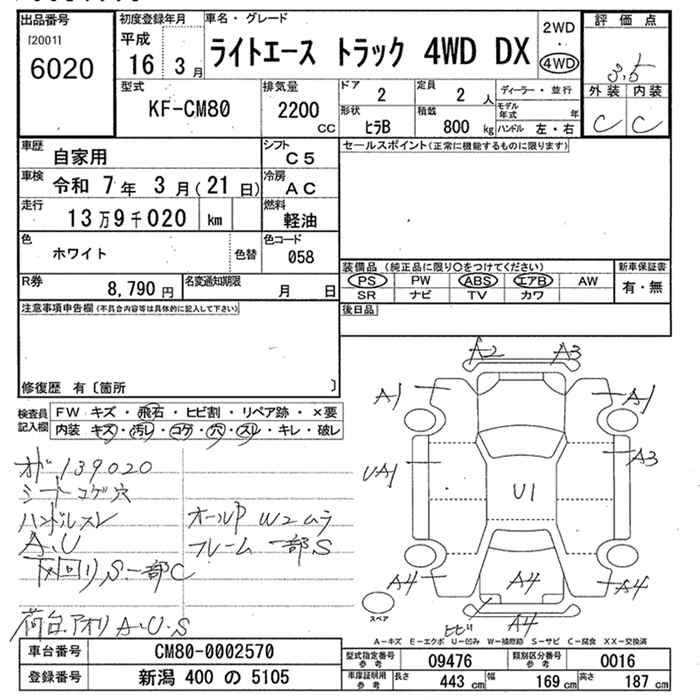 出品番号
[2001]
6020
初度登録年月
平成
16 3月
車名・グレード
ライトエース トラック 4WD DX
2WD
・
4WD
評価点
3.5
外装 内装
C C
型式
KF-CM80
排気量
2200 CC
ドア
2
定員
2 人
形状
ヒラB
積載
800 kg
ディーラー・並行
モデル年式 年
ハンドル 左・右
車歴
自家用
シフト
C5
車検
令和 7年 3月(21日)
冷房
AC
走行
13万9千020 km
燃料
軽油
色
ホワイト
色替
色コード
058
R券
8,790円
名変通知期限
月 日
セールスポイント(正常に機能するものに限ります)
装備品(純正品に限り○をつけてください)
PS PW ABS エアB AW
SR ナビ TV カワ
新車保証書
有・無
後日品
注意事項申告欄(不具合内容等は具体的に記入して下さい)
修復歴 有〔箇所 〕
検査員記入欄
FW キズ・飛石・ヒビ割・リペア跡・×要
内装 キズ・汚レ・コゲ・穴・スレ・キレ・破レ
オド139020
シートコゲ穴
ハンドルスレ
A.U
下回りS一部C
荷台アオリA.U.S
オールP W2ムラ
フレーム一部S
A2 A3
A1 A1
UA1 A3
U1
A4 A4 A4
ヒビ A4
スペア
A-キズ E-エクボ U-凹み W-補修跡 S-サビ C-腐食 XX-交換済
車台番号
CM80-0002570
登録番号
新潟 400 の 5105
型式指定番号参考
09476
類別区分番号参考
0016
車庫証明用参考
長さ 443 cm
幅 169 cm
高さ 187 cm